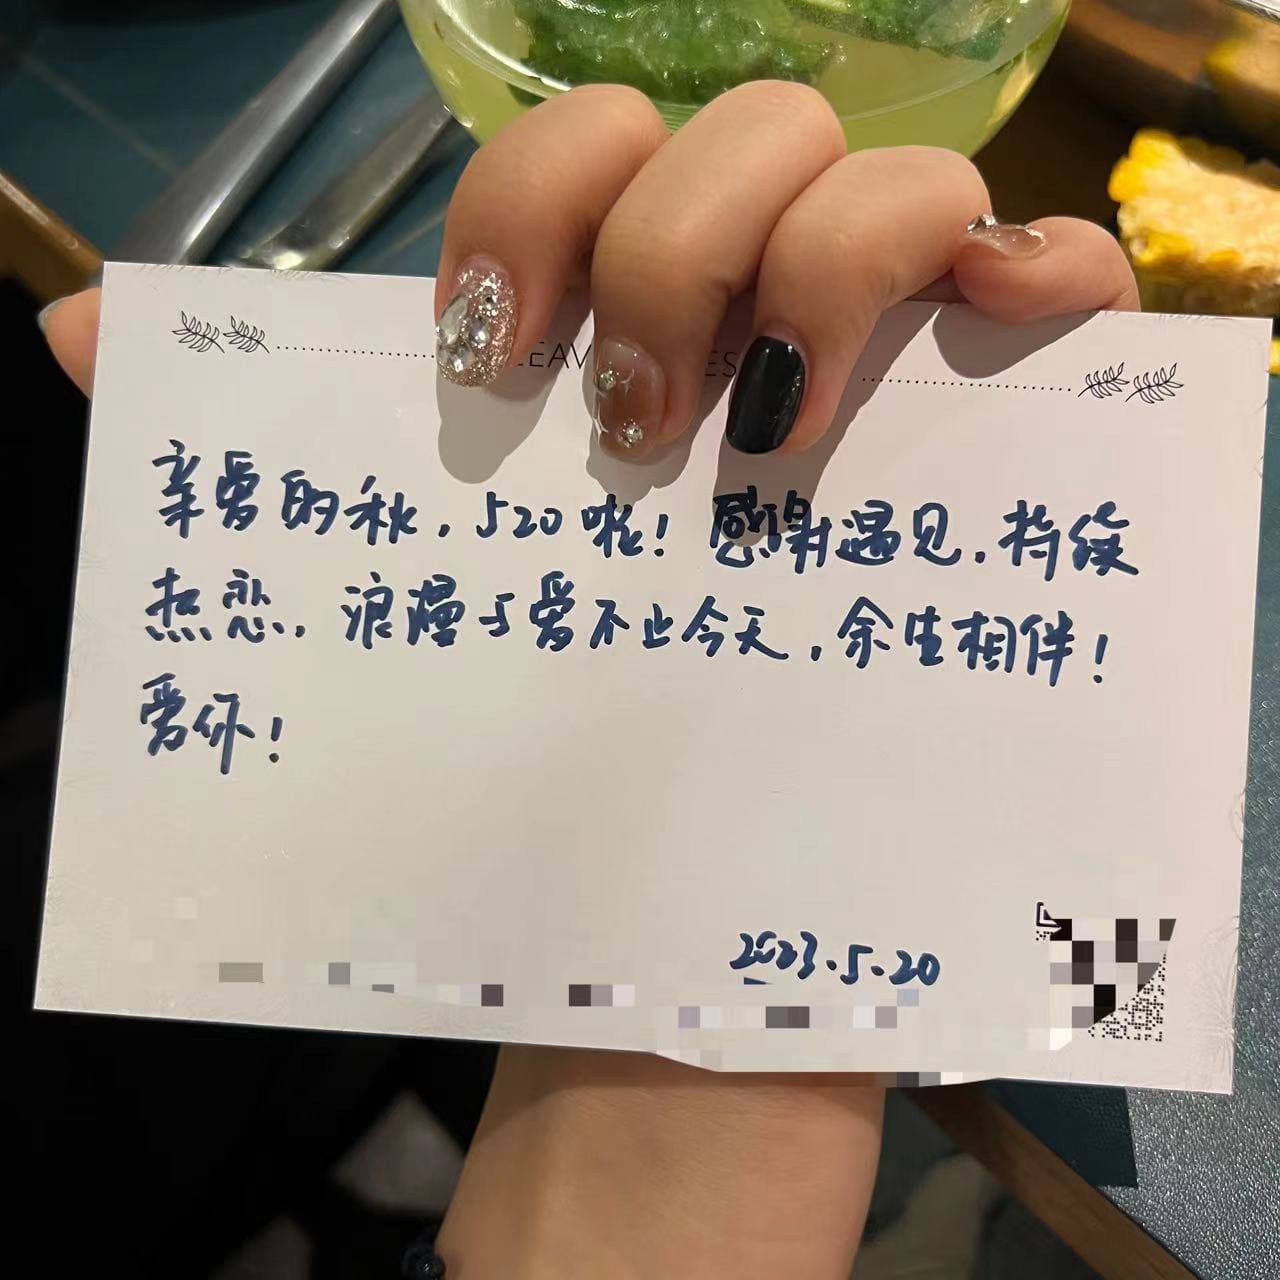 亲爱的秋，520啦！感谢遇见，持续
热恋，浪漫与爱不止今天，余生相伴！
爱你！
2023.5.20